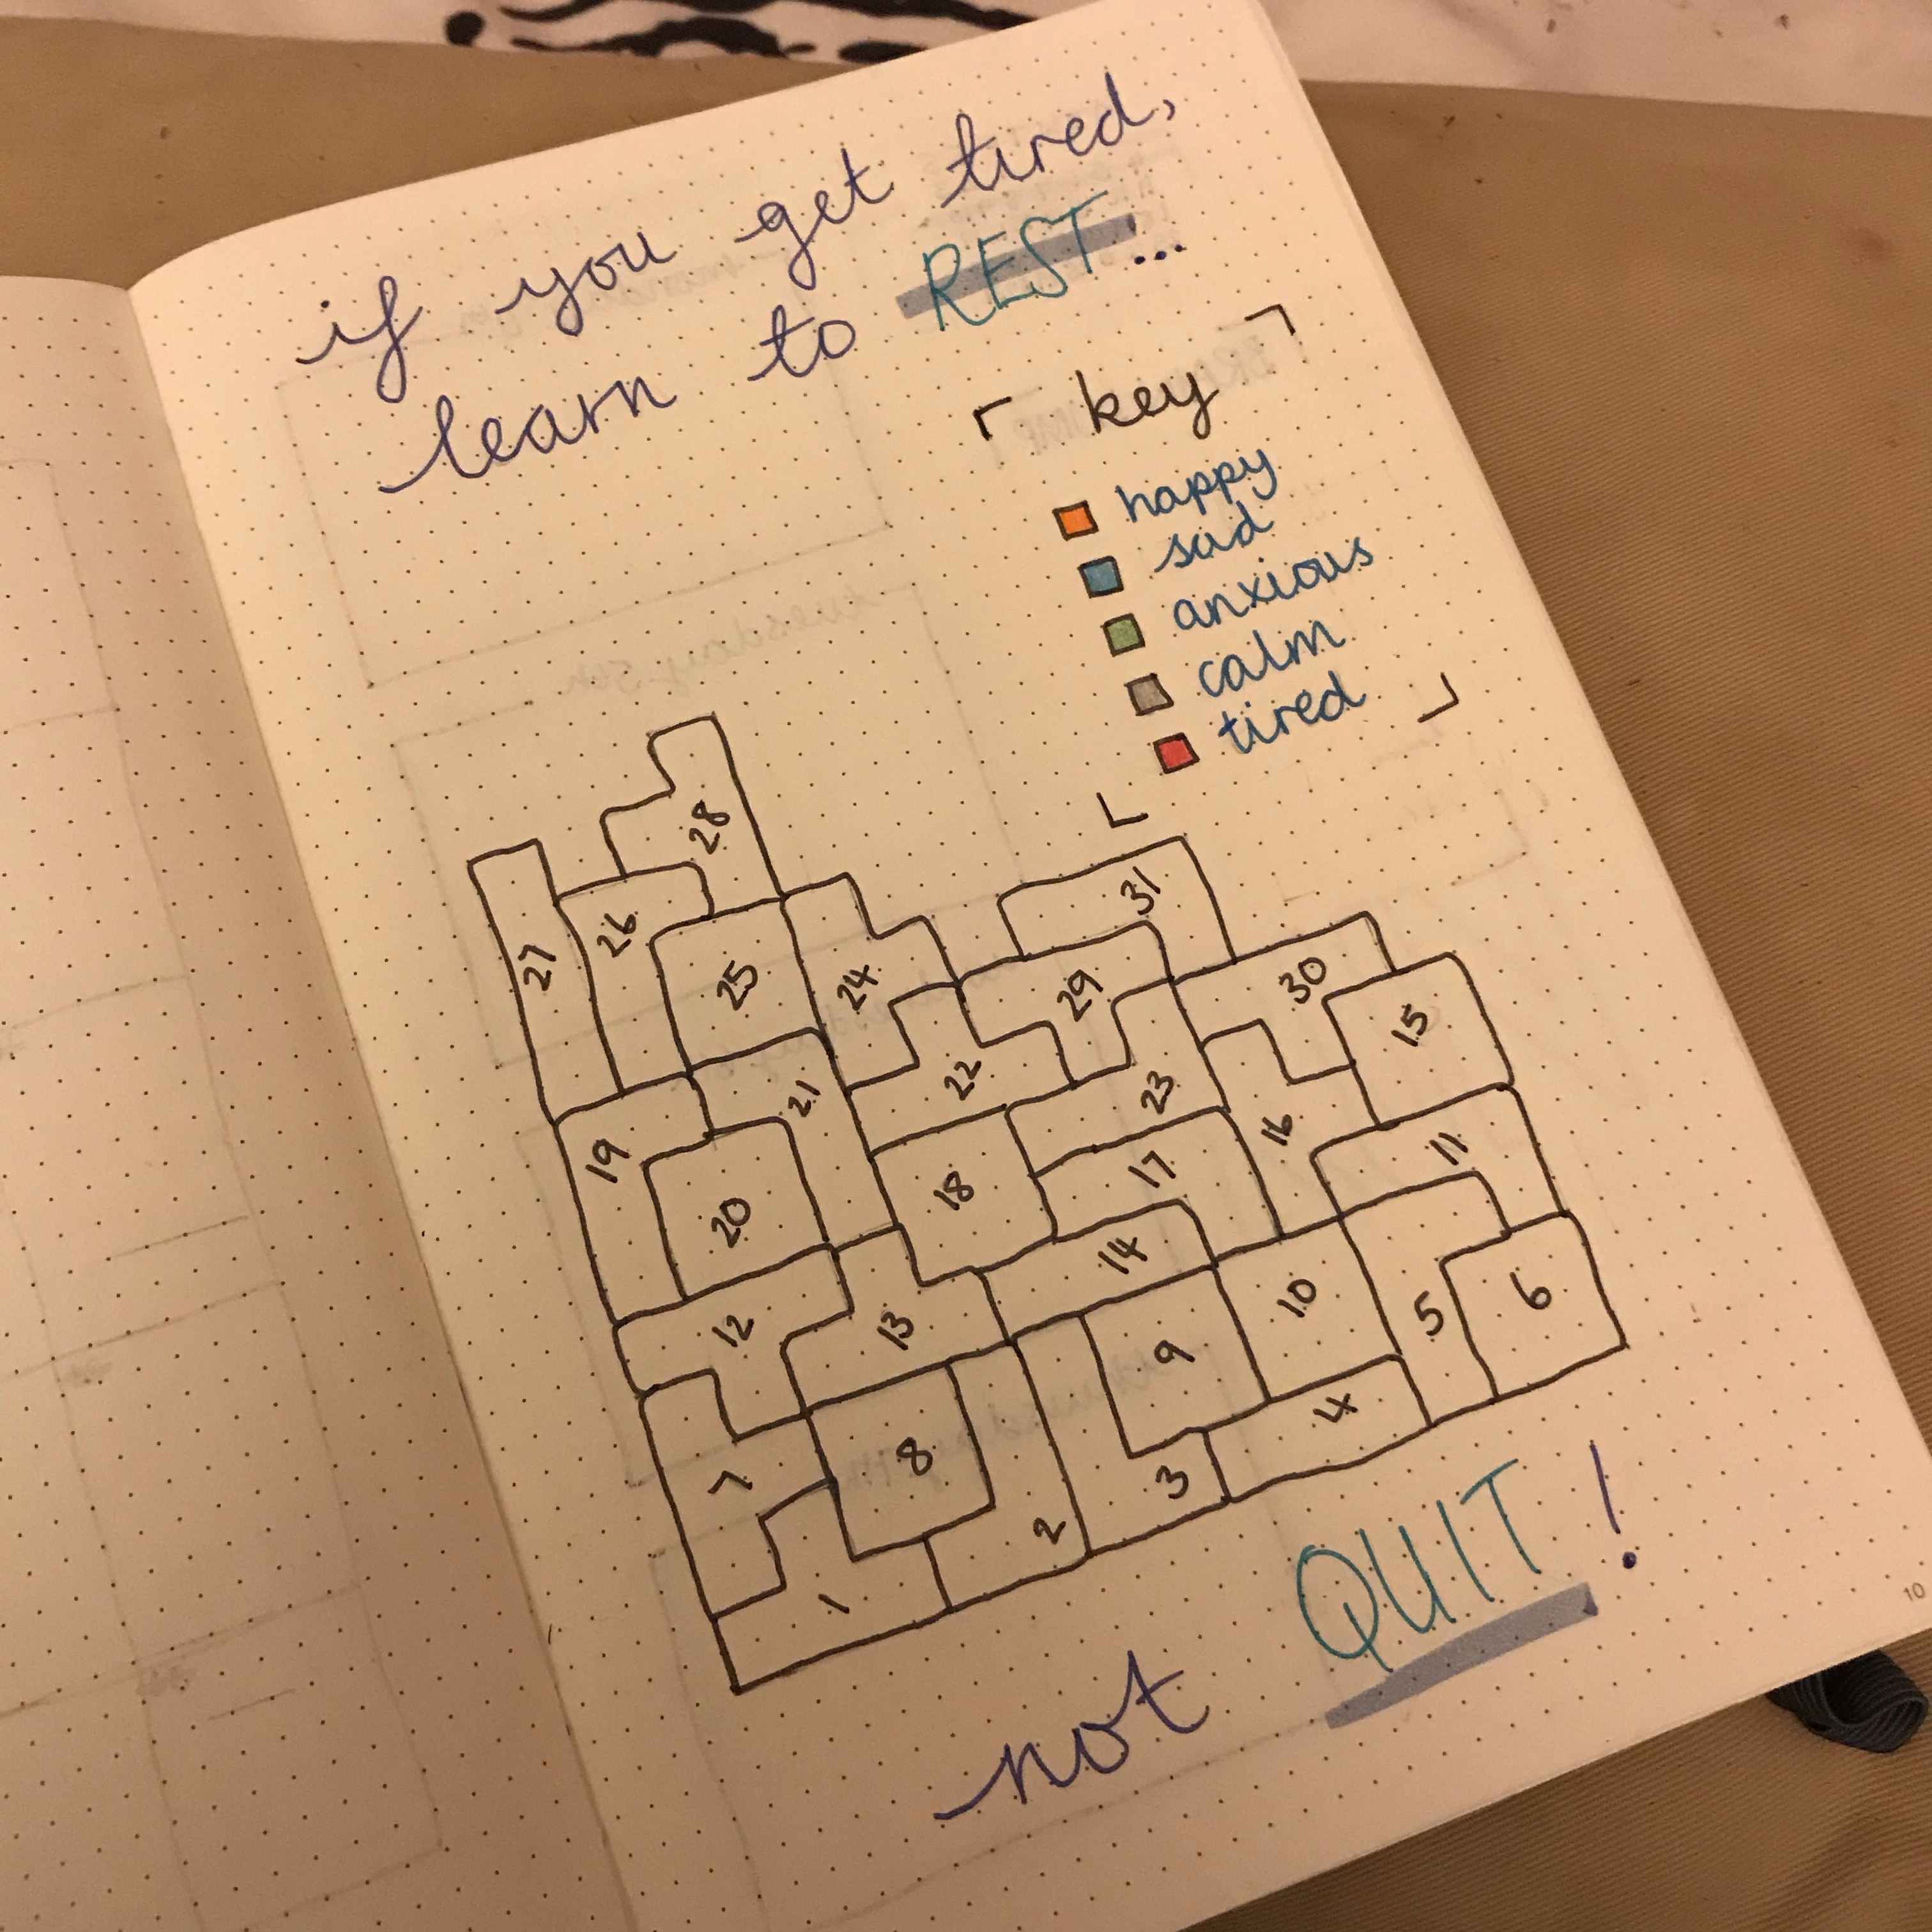 if you get tired,
learn to REST...
key
happy
sad
anxious
calm
tired
28
31
27
26
25
24
29
30
15
22
23
21
19
20
18
17
16
11
12
13
14
10
5
6
9
4
7
8
3
2
1
not QUIT!
10